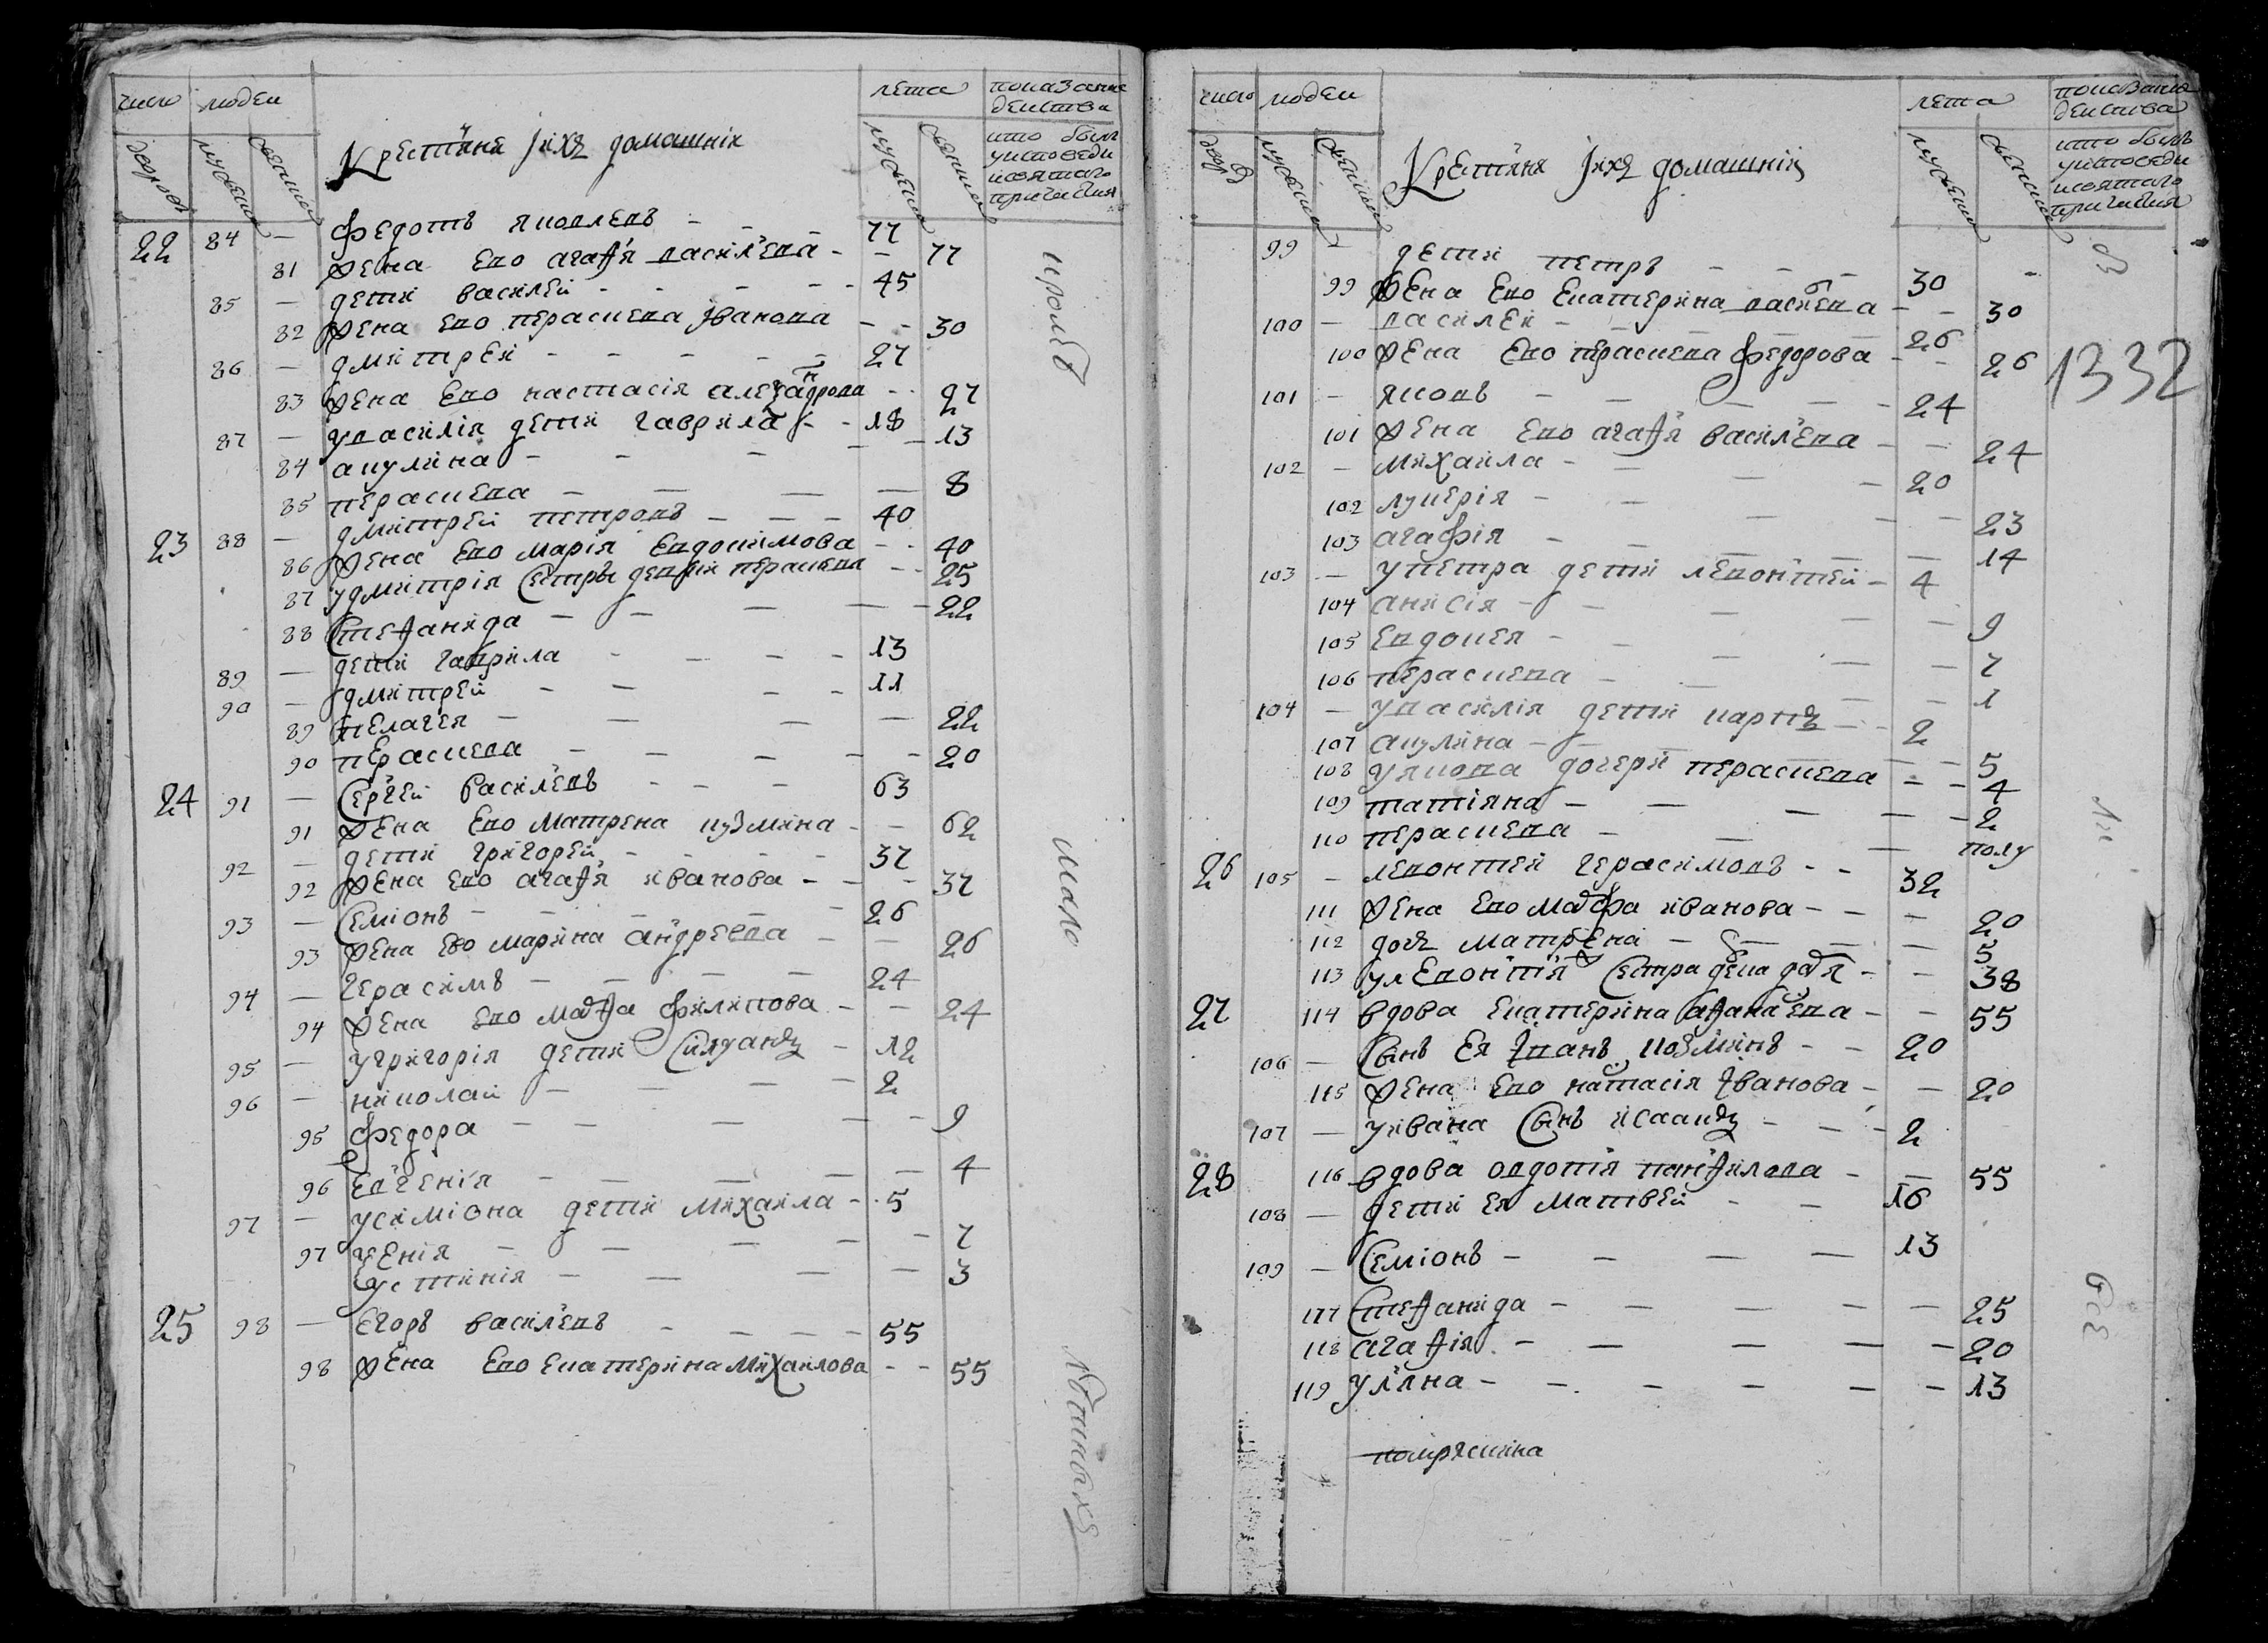 число людеи лета показание
деиства
дворовъ мужеска женска Крестїяня ихъ домашнїи мужеска женска кто былъ
уисповеди
исвятаго
причастия
22 84 — Федотъ яковлевъ — 77
81 жена ево агаѳя василева — 77
85 — дети василеи — 45
82 жена ево пераскева Иванова — 30
86 — дмитреи — 27
83 жена ево настасїя алеѯандрова — 27
87 — увасилїя дети гаврила — 18
84 акулина — 13
85 пераскева — 8
23 88 — дмитреи петровъ — 40
86 жена ево марїя евдокимова — 40
87 удмитрїя сестры девки пераскева — 25
88 стеѳанида — 22
89 — дети гаврила — 13
90 — дмитреи — 11
89 пелагея — 22
90 пераскева — 20
24 91 — сергеи василевъ — 63
91 жена ево матрена кузмина — 62
92 — дети григореи — 37
92 жена ево агаѳя иванова — 37
93 — семїонъ — 26
93 жена ево марина андреева — 26
94 — герасимъ — 24
94 жена ево маѳа филипова — 24
95 — угригорїя дети силуанъ — 12
96 — николаи — 2
95 федора — 9
96 евгенїя — 4
97 — усимїона дети михаила — 5
97 ѯенїя — 7
устинїя — 3
25 98 — егоръ василевъ — 55
98 жена ево екатерина михаилова — 55
кромѣ
мало
лѣтныхъ
число людеи лета показание
деиства
дворовъ мужеска женска Крестїяня ихъ домашнїи мужеска женска кто былъ
уисповеди
исвятаго
причастия
99 — дети петръ — 30
99 жена ево екатерина василева — 30
100 — василеи — 26
100 жена ево пераскева федорова — 26
101 — яковъ — 24
101 жена ево агаѳя василева — 24
102 — михаила — 20
102 лукерїя — 23
103 агафїя — 14
103 — упетра дети левонтеи — 4
104 анисїя — 9
105 евдокея — 7
106 пераскева — 1
104 — увасилїя дети карпъ — 2
107 акулина — 5
108 уякова дочери пераскева — 4
109 татїяна — 2
110 пераскева — полу
26 105 — левонтеи герасимовъ — 32
111 жена ево мафа иванова — 20
112 дочь матрена — 5
113 улевонтїя сестра девка дая — 38
27 114 вдова екатерина аѳанаева — 55
106 — сынъ ея Иванъ козминъ — 20
115 жена ево натасїя Иванова — 20
107 — уивана сынъ исаакъ — 2
28 116 вдова овдотїя панѳилова — 55
108 — дети ея матвеи — 16
109 — семїонъ — 13
117 стеѳанида — 25
118 агаѳїя — 20
119 улїяна — 13
1332
все